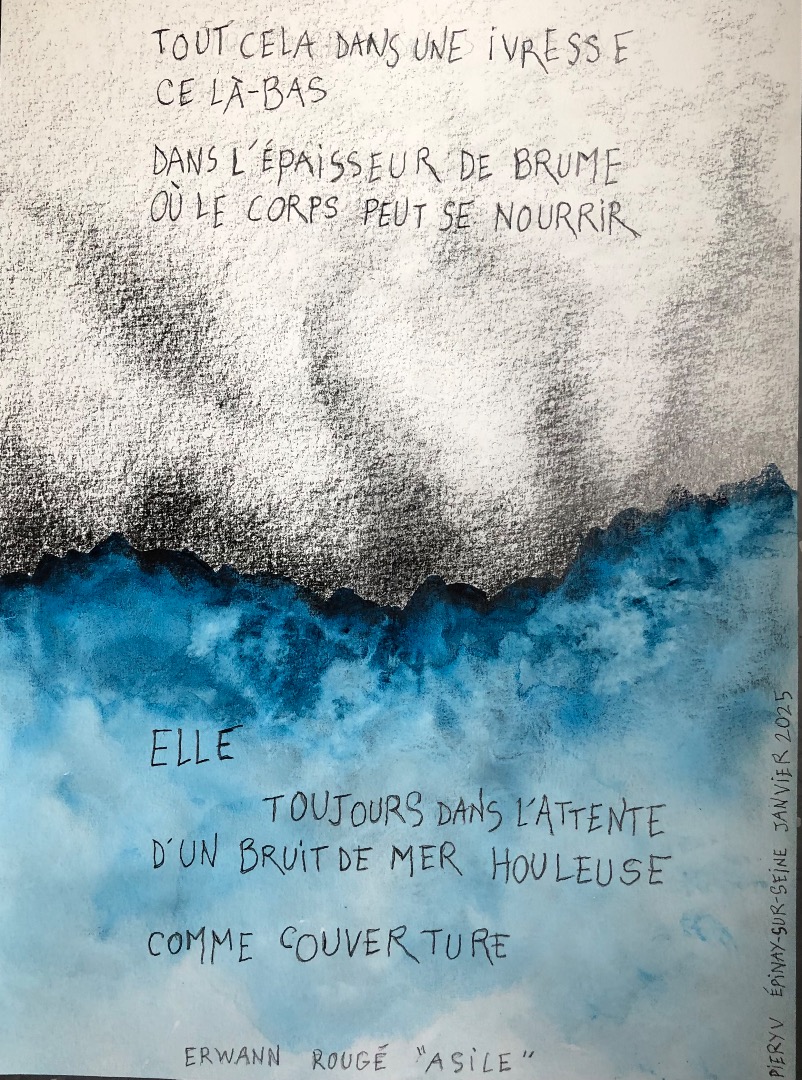 TOUT CELA DANS UNE IVRESSE
CE LÀ-BAS
DANS L'ÉPAISSEUR DE BRUME
OÙ LE CORPS PEUT SE NOURRIR
ELLE
TOUJOURS DANS L'ATTENTE
D'UN BRUIT DE MER HOULEUSE
COMME COUVERTURE
ERWANN ROUGÉ "ASILE"
PIERYV ÉPINAY-SUR-SEINE JANVIER 2025